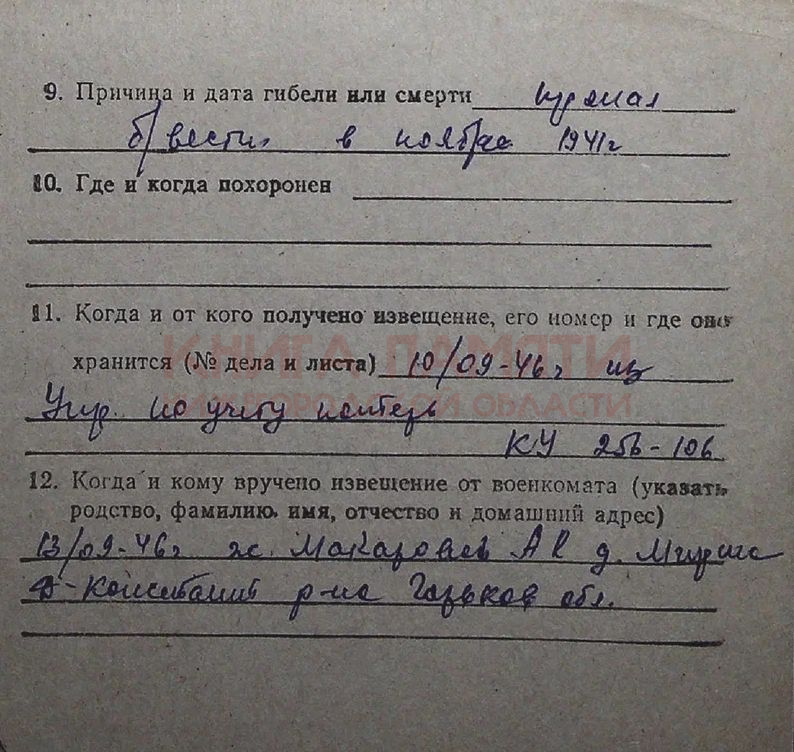 9. Причина и дата гибели или смерти пропал
б/вести в ноябре 1941г
10. Где и когда похоронен
11. Когда и от кого получено извещение, его номер и где оно
хранится (№ дела и листа) 10/09-46г из
КНИГА ПАМЯТИ
Упр. по учету потерь
НИЖЕГОРОДСКОЙ ОБЛАСТИ
КУ 256-106
12. Когда и кому вручено извещение от военкомата (указать
родство, фамилию, имя, отчество и домашний адрес)
13/09-46г ж. Макаровой А К д.
Д-Констант р-на Горьков обл.